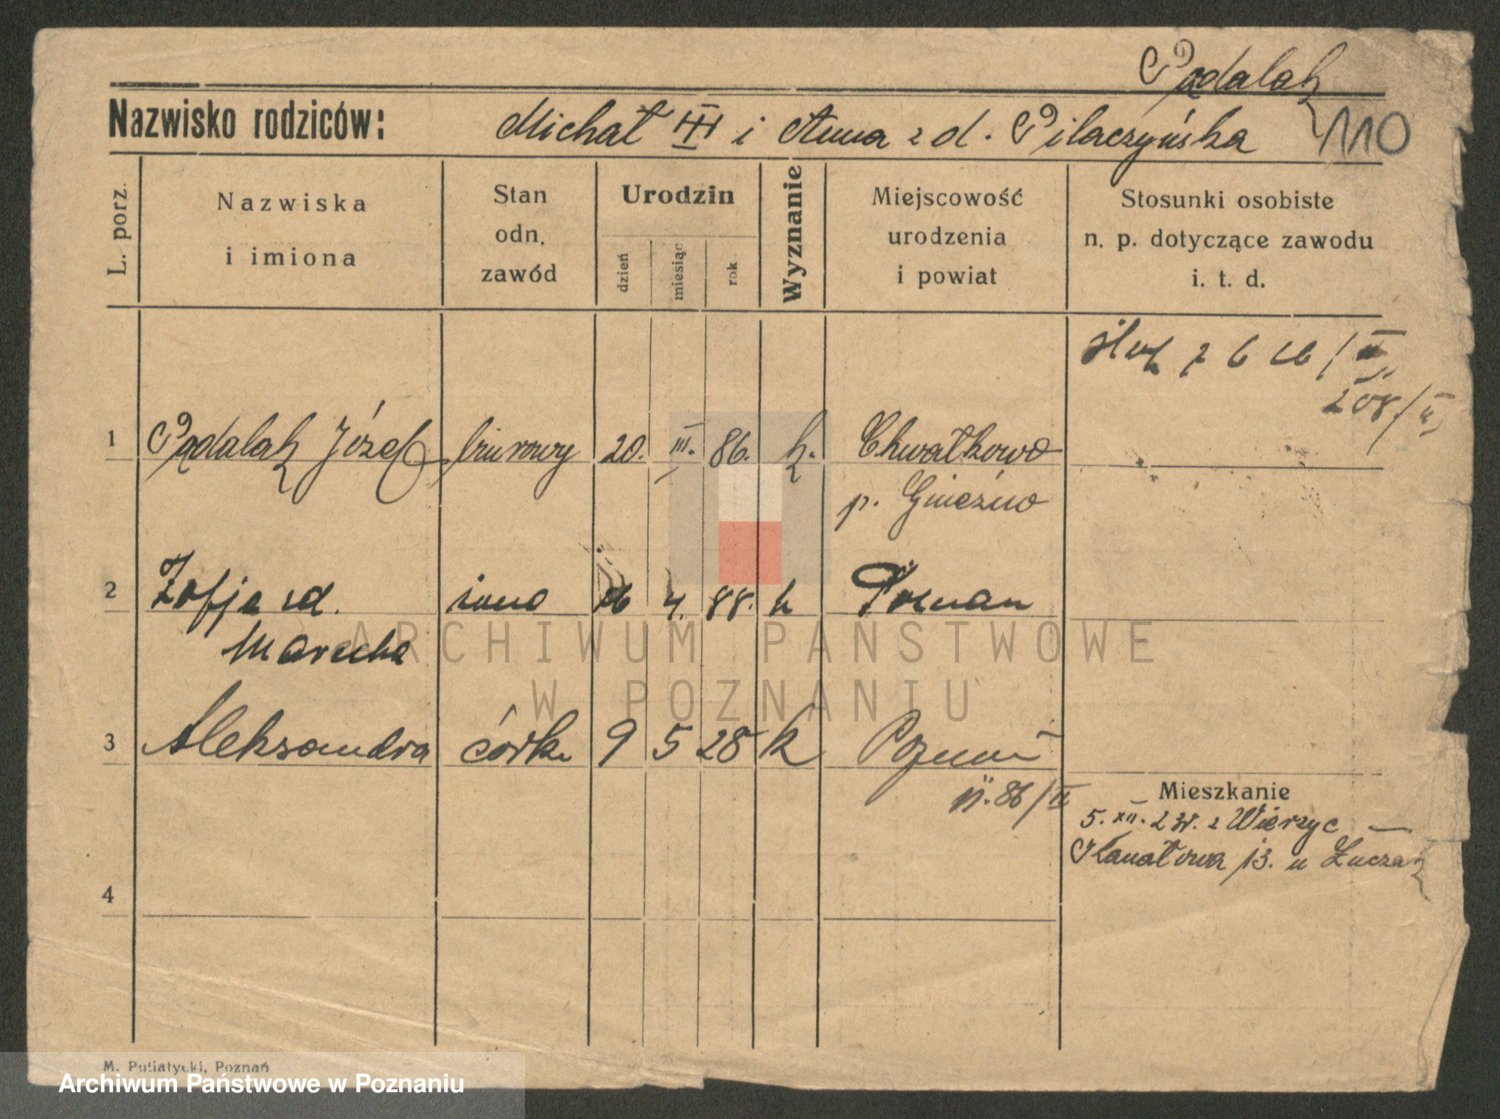 Pądalak
Nazwisko rodziców: Michał i Anna z d. Pilaczyńska 110
L. porz. Nazwiska i imiona Stan odn. zawód Urodzin dzień miesiąc rok Wyznanie Miejscowość urodzenia i powiat Stosunki osobiste n. p. dotyczące zawodu i. t. d.
208/II
1 Pądalak Józef biurowy 20. III. 86. k. Chwałkowo
p. Gniezno
2 Zofja zd. żona 4. 88. k Poznan
3 Aleksandra córka 9 5 28 k Poznań
86/II
Mieszkanie
5. XII. z Wierzyc
13. u
4
M. Putiatycki, Poznań
ARCHIWUM PAŃSTWOWE
W POZNANIU
Archiwum Państwowe w Poznaniu